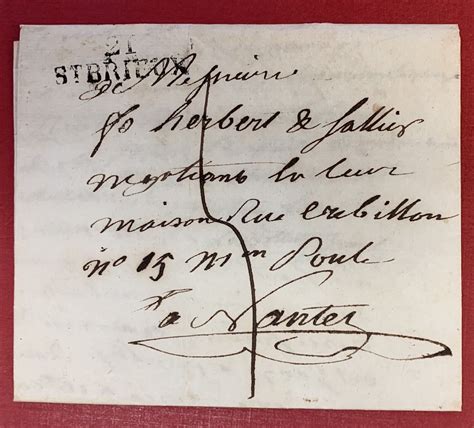 21
ST BRIEUX
A Messieurs
fo herbert & Sallier
negotians en leur
maison Rue Crebillon
no 15 Mon Poul
a Nantes